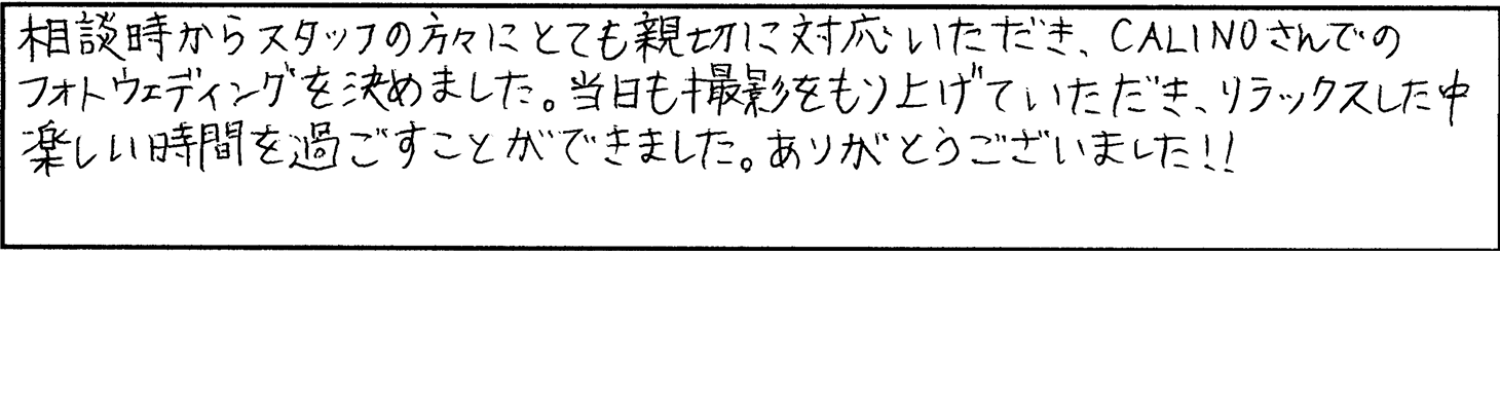 相談時からスタッフの方々にとても親切に対応いただき、CALINOさんでの
フォトウェディングを決めました。当日も撮影をもり上げていただき、リラックスした中
楽しい時間を過ごすことができました。ありがとうございました!!